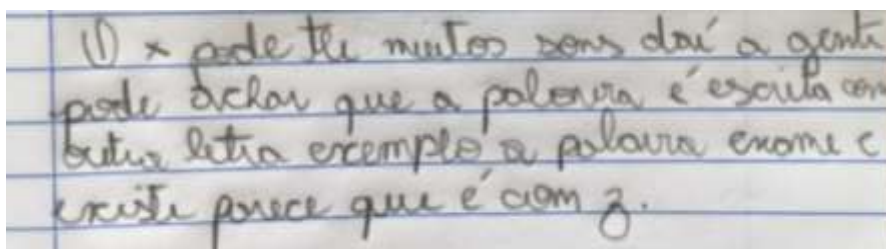 O x pode te muitos sons daí a gente
pode achar que a palavra é escrita com
outra letra exemplo a palavra exame e
existe parece que é com z.